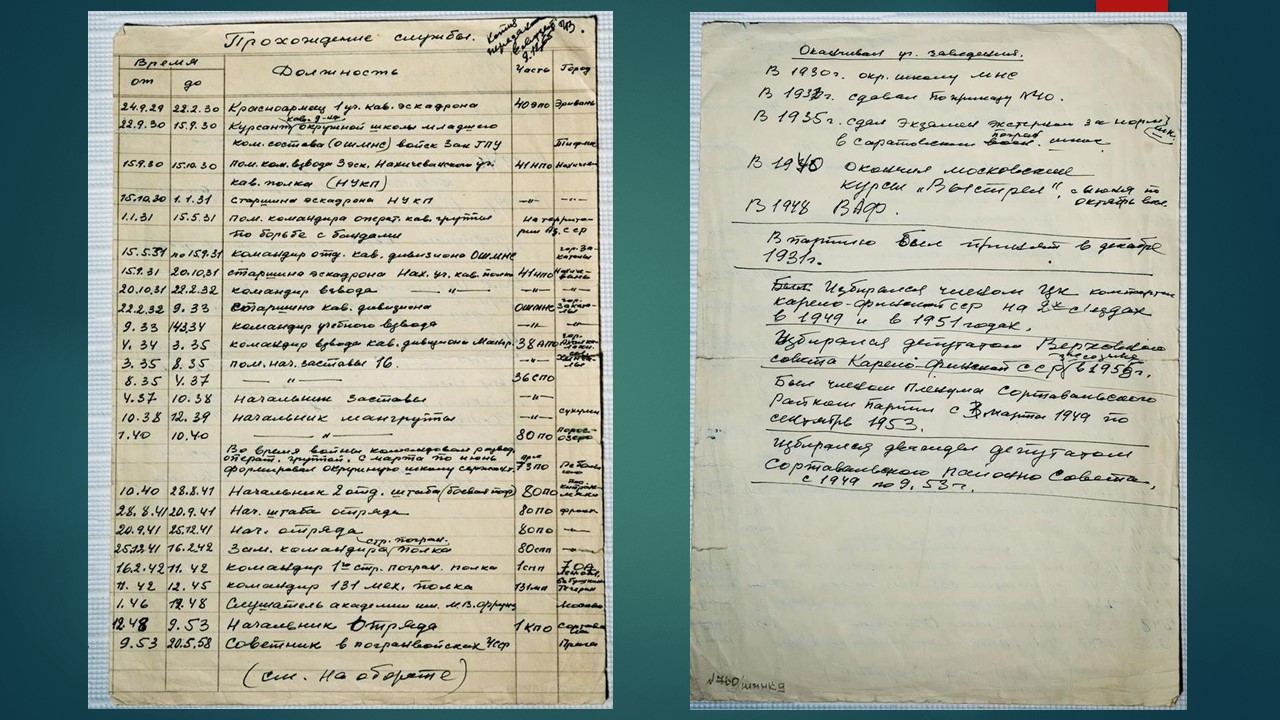 Прохождение службы.
Время
от до Должность Часть Город
24.9.29 22.2.30 Красноармеец 1 уч. кав. эскадрона 40 ЭПО Эривань
кав. д-на
22.9.30 15.9.30 Курсант окружной школы младшего
ком. состава (ОШМНС) войск Зак ГПУ Тифлис
15.9.30 15.10.30 Пом. ком. взвода 3 эск. Нахичеванского уч. 41 НПО
кав. полка (НУКП)
15.10.30 1.1.31 Старшина эскадрона НУКП —"— —"—
1.1.31 15.5.31 пом. командира операт. кав. группы на территории
по борьбе с бандами Аз. ССР
15.5.31 по 15.9.31 командир отд. кав. дивизиона ОШМНС
15.9.31 20.10.31 старшина эскадрона Нах. уч. кав. полка 41 НПО
20.10.31 22.2.32 командир взвода —"— —"— —"—
22.2.32 9.33 Старшина кав. дивизиона ОШМНС
9.33 командир учебного взвода —"— —"—
V.34 3.35 командир взвода кав. дивизиона 38 АПО
3.35 8.35 пом. нач. заставы 16. —"—
8.35 V.37 —"— 36 СПО
4.37 10.38 Начальник заставы —"—
10.38 12.39 начальник мангруппы —"— Сухуми
1.40 10.40 —"— 80 ПО Поросозеро
Во время войны командовал развед.
операт. группой. С марта по июнь при
формировал окружную школу сержант. 73 ПО
10.40 28.8.41 Начальник 2 отд. штаба (боевая под) 80 ПО
28.8.41 20.9.41 Нач. штаба отряда 80 ПО фронт
20.9.41 25.12.41 Нач. отряда 80 ПО —"—
стр. погран.
25.12.41 16.2.42 Зам. командира полка 80 СПП —"—
16.2.42 11.42 командир 1го стр. погран. полка 1 СПП
11.42 12.45 командир 131 мех. полка 131 МП Тегеран
1.46 12.48 Слушатель академии им. М.В. Фрунзе Москва
12.48 9.53 Начальник Отряда 1 КПО
9.53 20.5.58 Советник в погранвойсках ЧСР Прага
(см. на обороте)
Оканчивал уч. заведения.
В 1930г. окр. школу МНС
В 1937г. сдавал по приказу №40.
В 1935г. сдал экзамен экстерном за норм.
погран
в Саратовском воен. школе
В 1940 окончил московские
курсы "Выстрел", с июня по
октябрь вкл.
В 1948 ВАФ.
В партию был принят в декабре
1931г.
Был Избирался членом ЦК компартии
Карело-Финской ССР на 2х съездах
в 1949 и в 1951 годах.
Избирался депутатом Верховного
совета Карело-Финской ССР в 195 г.
Был членом Пленума Сортавальского
Райкома партии с марта 1949 по
сентябрь 1953.
Избирался дважды депутатом
Сортавальского районно Совета,
с 1949 по 9.53г.